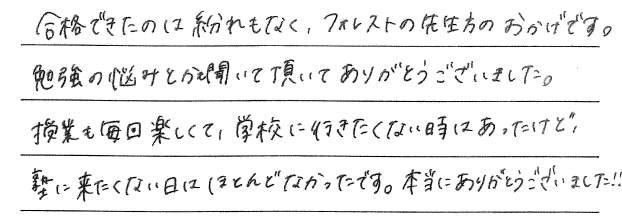 合格できたのは紛れもなく、フォレストの先生方のおかげです。
勉強の悩みとか聞いて頂いてありがとうございました。
授業も毎回楽しくて、学校に行きたくない時はあったけど、
塾に来たくない日はほとんどなかったです。本当にありがとうございました!!